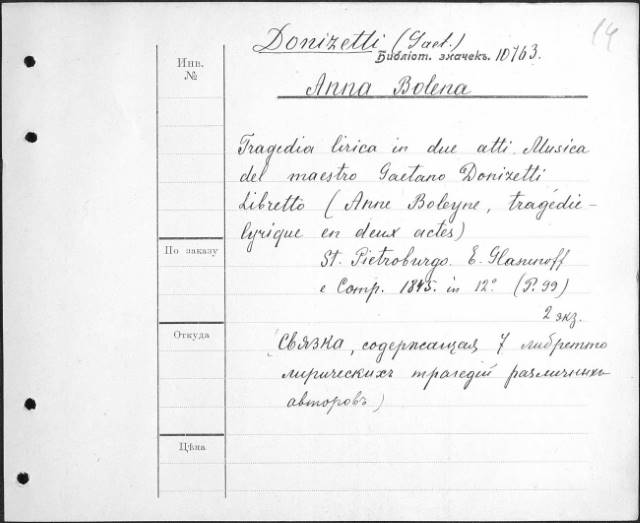 14
Donizetti (Gaet.)
Библіот. значекъ. 10763.
Инв.
№
Anna Bolena
Tragedia lirica in due atti. Musica
del maestro Gaetano Donizetti
Libretto (Anne Boleyne, tragédie-
lyrique en deux actes)
По заказу
St. Pietroburgo. E. Glasunoff
e Comp. 1845. in 12° (P. 99)
2 экз.
Откуда
(Связка, содержащая 7 либретто
лирическихъ трагедій различныхъ
авторовъ)
Цѣна